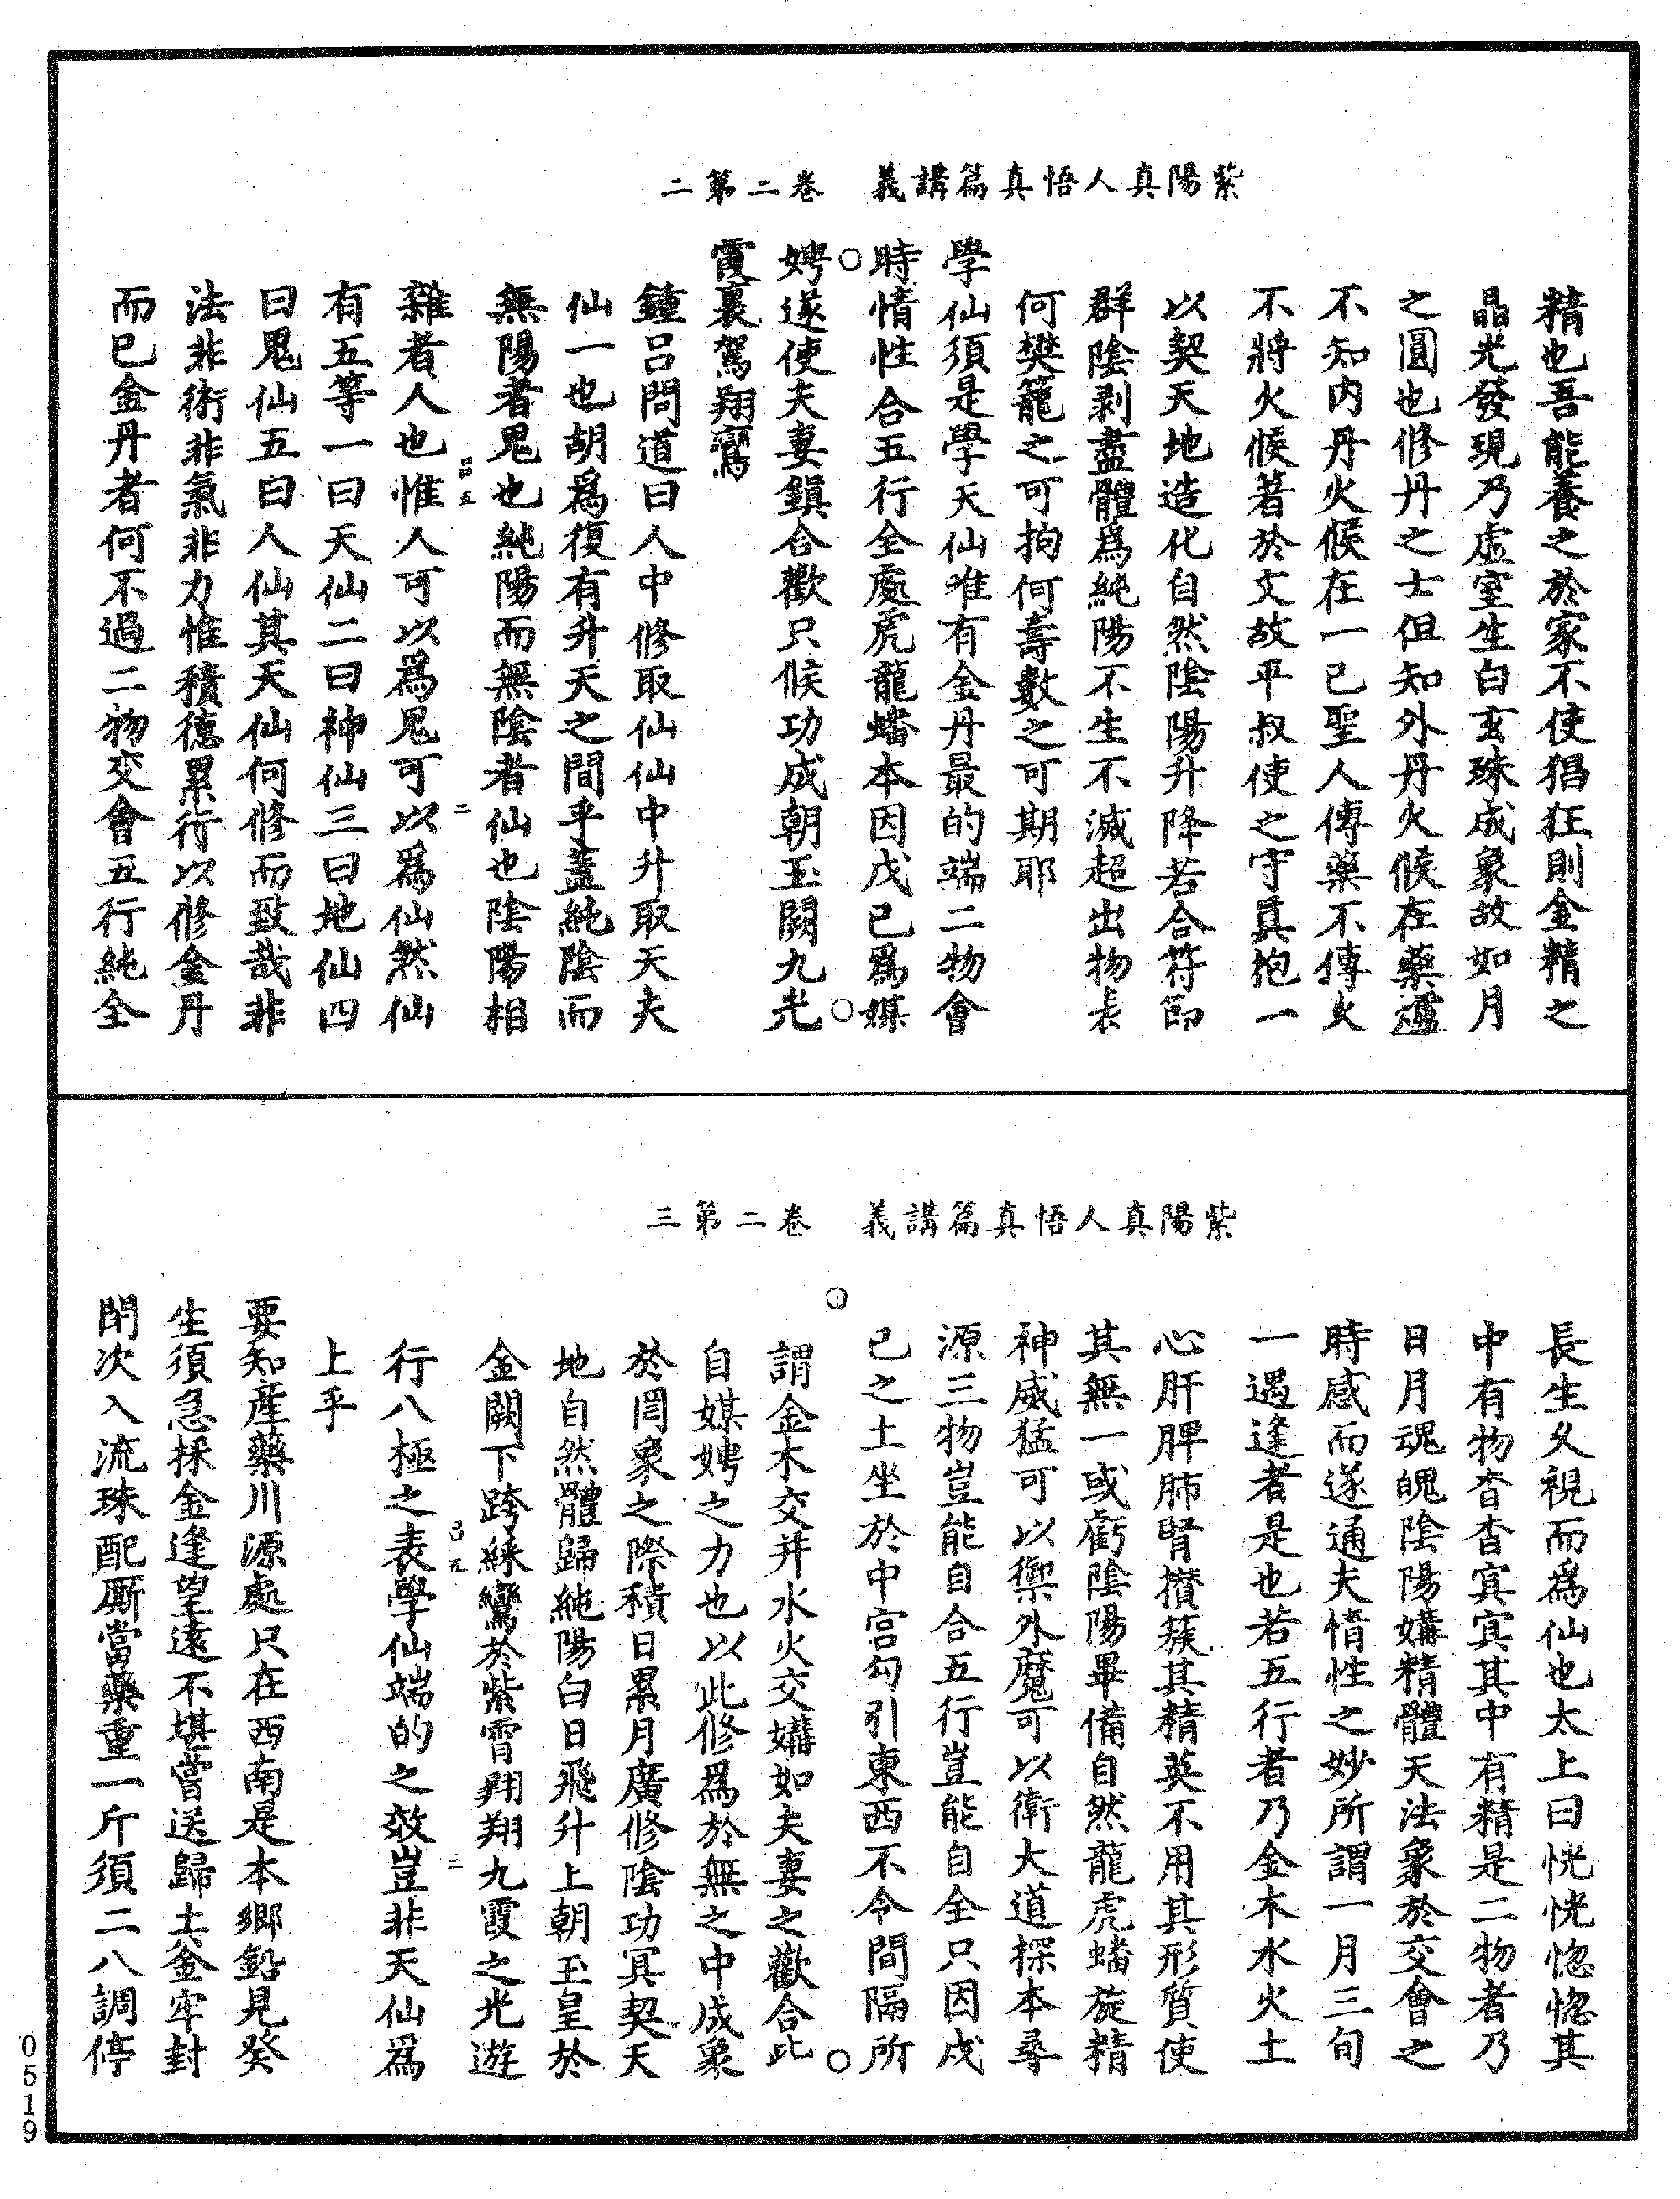 紫陽真人悟真篇講義　卷二第二
精也吾能養之於家不使猖狂則金精之
晶光發現乃虛室生白玄珠成象故如月
之圓也修丹之士但知外丹火候在藥爐
不知内丹火候在一己聖人傳藥不傳火
不將火候著於文故平叔使之守真抱一
以契天地造化自然陰陽升降若合符節
群陰剥盡體爲純陽不生不滅超出物表
何樊籠之可拘何壽數之可期耶
學仙須是學天仙唯有金丹最的端二物會
時情性合五行全處虎龍蟠本因戊己爲媒
娉遂使夫妻鎮合歡只候功成朝玉闕九光
霞裏駕翔鸞
鍾吕問道曰人中修取仙仙中升取天夫
仙一也胡爲復有升天之間乎蓋純陰而
無陽者鬼也純陽而無陰者仙也陰陽相
雜者人也惟人可以爲鬼可以爲仙然仙
有五等一曰天仙二曰神仙三曰地仙四
曰鬼仙五曰人仙其天仙何修而致哉非
法非術非氣非力惟積德累行以修金丹
而已金丹者何不過二物交會五行純全
紫陽真人悟真篇講義　卷二第三
長生久視而爲仙也太上曰恍恍惚惚其
中有物杳杳冥冥其中有精是二物者乃
日月魂魄陰陽媾精體天法象於交會之
時感而遂通夫情性之妙所謂一月三旬
一遇逢者是也若五行者乃金木水火土
心肝脾肺腎攢蔟其精英不用其形質使
其無一或虧陰陽畢備自然龍虎蟠旋精
神威猛可以禦外魔可以衛大道探本尋
源三物豈能自合五行豈能自全只因戊
己之土坐於中宫勾引東西不令間隔所
謂金木交并水火交媾如夫妻之歡合此
自媒娉之力也以此修爲於無之中成象
於罔象之際積日累月廣修陰功冥契天
地自然體歸純陽白日飛升上朝玉皇於
金闕下跨綵鸞於紫霄翔翔九霞之光遊
行八極之表學仙端的之效豈非天仙爲
上乎
要知産藥川源處只在西南是本鄉鉛見癸
生須急採金逢望遠不堪嘗送歸土釜牢封
閉次入流珠配厮當藥重一斤須二八調停
0519